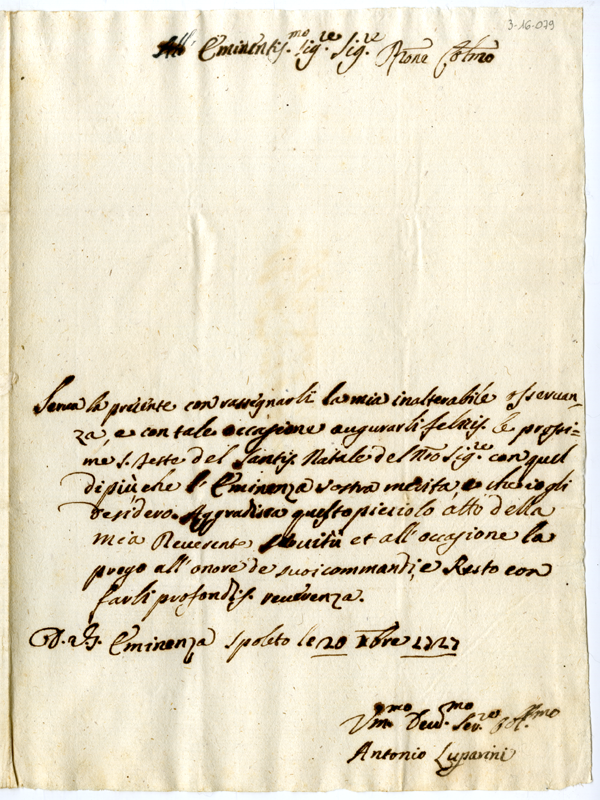 3-16-079
All' Eminentis.mo Sig.re Sig.re Prone Colmo
Serva la presente con rassegnarli la mia inalterabile osservan-
za, e con tale occasione augurarli felicis. le prossi-
me S. Feste del Santis. Natale del Nro Sig.re con quel
di più che l'Eminenza vostra merita, e che io gli
desidero. Aggradisca questo picciolo atto della
mia Reverente servitù et all'occasione la
prego all'onore de suoi commandi, e Resto con
farli profondis. reverenza.
D. V. Eminenza Spoleto le 20 Xbre 1727
Um.mo Dev.mo Ser.re Obl.mo
Antonio Luparini